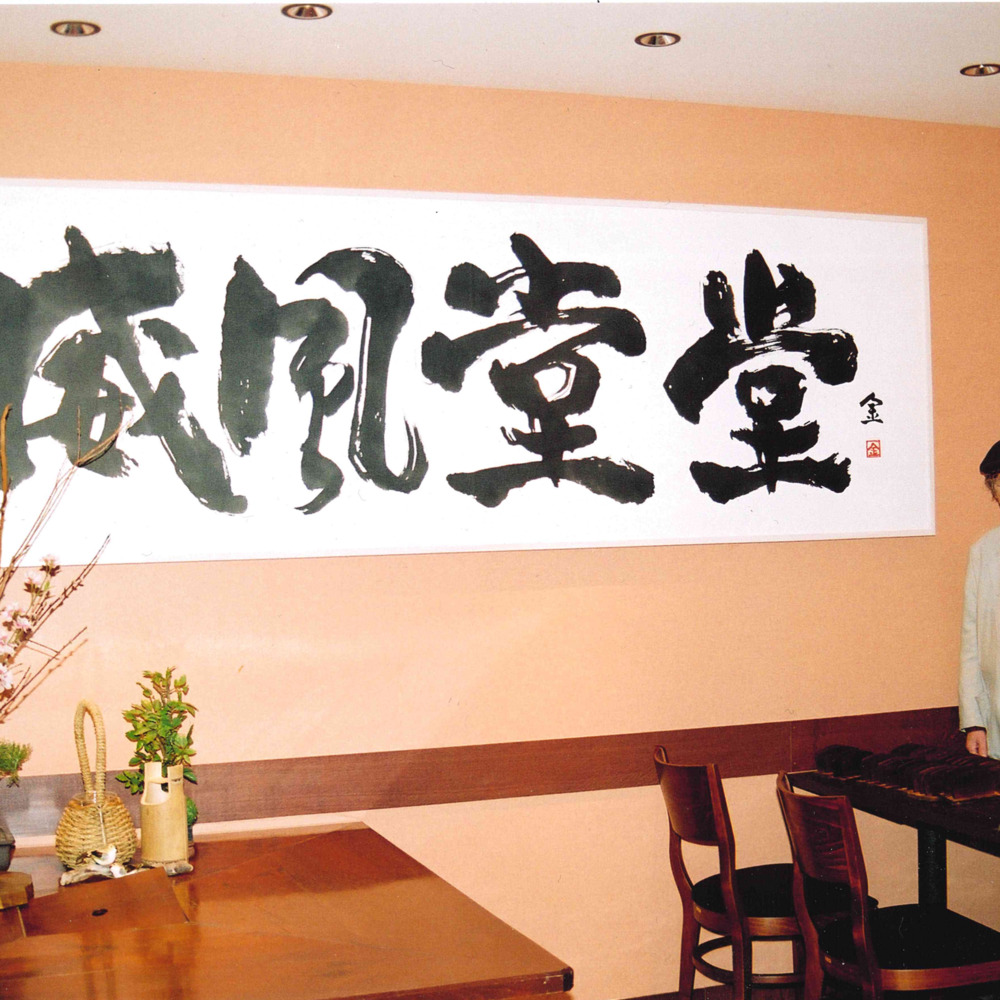 威風堂堂
金
金